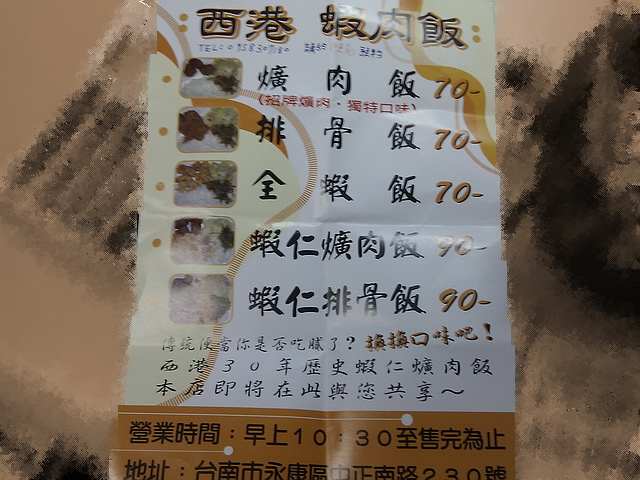 西港 蝦肉飯
爌肉飯 70-
(招牌爌肉·獨特口味)
排骨飯 70-
全蝦飯 70-
蝦仁爌肉飯 90-
蝦仁排骨飯 90-
傳統便當你是否吃膩了? 換換口味吧!
西港30年歷史蝦仁爌肉飯
本店即將在此與您共享~
營業時間:早上10:30至售完為止
地址:台南市永康區中正南路230號